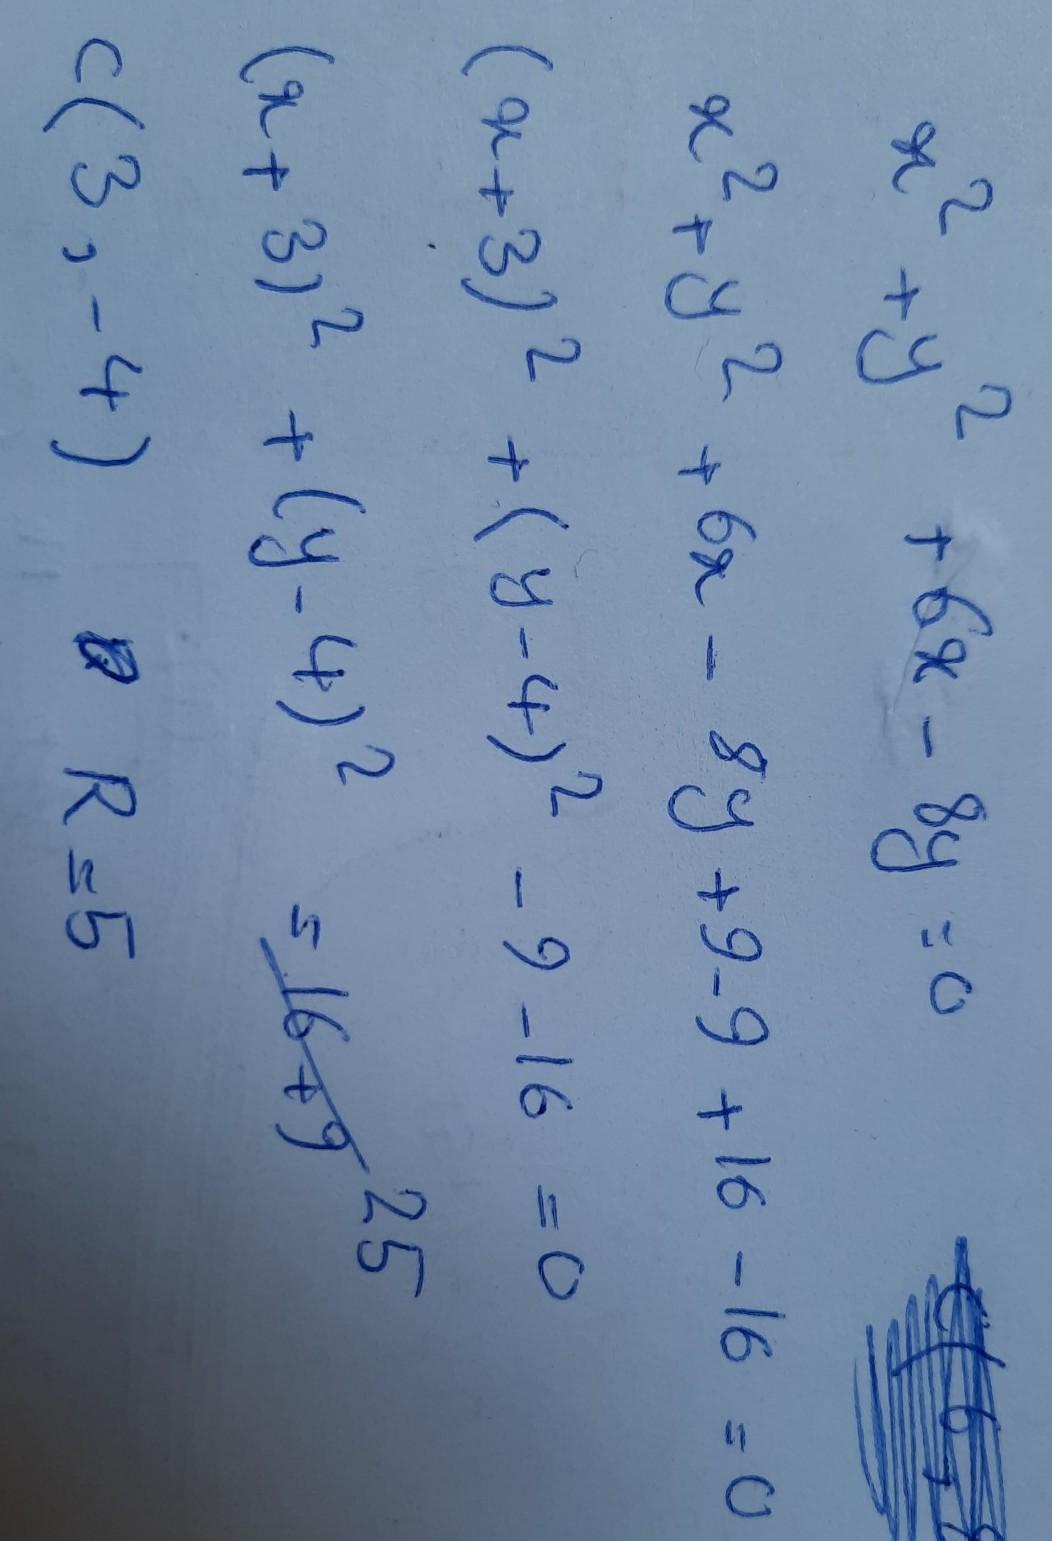 x² + y² + 6x - 8y = 0
x² + y² + 6x - 8y + 9 - 9 + 16 - 16 = 0
(x + 3)² + (y - 4)² - 9 - 16 = 0
(x + 3)² + (y - 4)² = 16 + 9 25
C(3, -4) R = 5